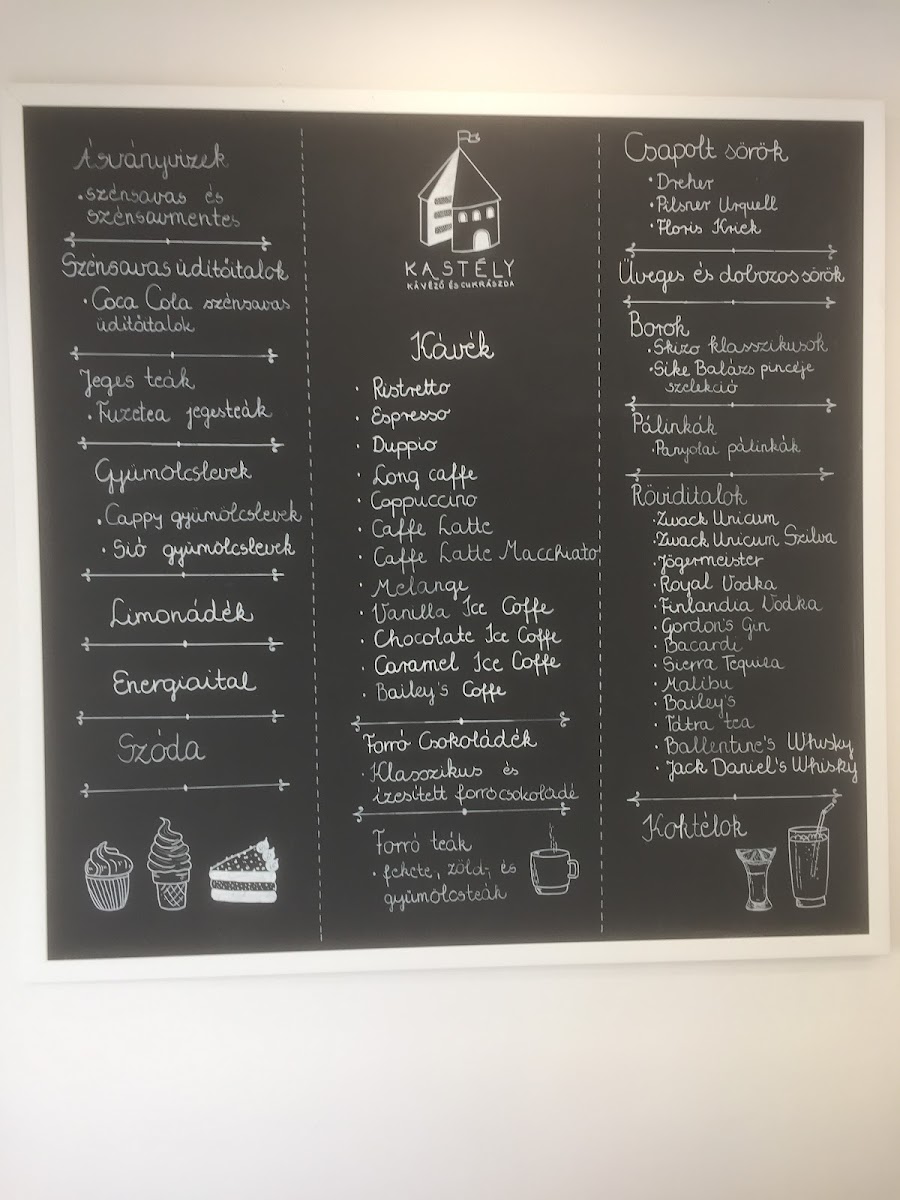 Ásványvizek
• szénsavas és
szénsavmentes
Szénsavas üdítőitalok
• Coca Cola szénsavas
üdítőitalok
Jeges teák
• Fuzetea jegesteák
Gyümölcslevek
• Cappy gyümölcslevek
• Sió gyümölcslevek
Limonádék
Energiaital
Szóda
KASTÉLY
KÁVÉZÓ ÉS CUKRÁSZDA
Kávék
• Ristretto
• Espresso
• Duppio
• Long caffe
• Coppuccino
• Caffe Latte
• Caffe Latte Macchiato
• Melange
• Vanilla Ice Coffe
• Chocolate Ice Coffe
• Caramel Ice Coffe
• Bailey's Coffe
Forró Csokoládék
• Klasszikus és
ízesített forrócsokoládé
Forró teák
• fekete, zöld, és
gyümölcsteák
Csapolt sörök
• Dreher
• Pilsner Urquell
• Floris Kriek
Üveges és dobozos sörök
Borok
• Skizo klasszikusok
• Sike Balázs pincéje
szelekció
Pálinkák
• Panyolai pálinkák
Röviditalok
• Zwack Unicum
• Zwack Unicum Szilva
• Jägermeister
• Royal Vodka
• Finlandia Vodka
• Gordon's Gin
• Bacardi
• Sierra Tequila
• Malibu
• Bailey's
• Tátra tea
• Ballentine's Whisky
• Jack Daniel's Whisky
Koktélok